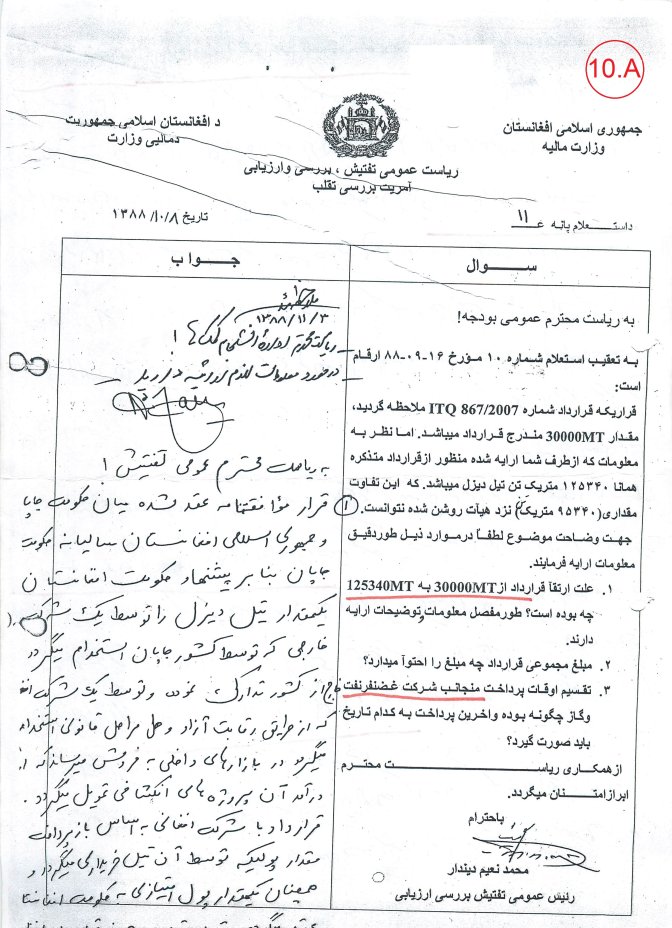 10.A
د افغانستان اسلامی جمهوریت
دمالیی وزارت
جمهوری اسلامی افغانستان
وزارت مالیه
ریاست عمومی تفتیش ، بررسی وارزیابی
آمریت بررسی تقلب
تاریخ ۱۳۸۸/۱۰/۸
داستعلام پاڼه ۱۱
سوال
به ریاست محترم عمومی بودجه!
به تعقیب استعلام شماره ۱۰ مؤرخ ۱۶-۰۹-۸۸ ارقام
است:
قراریکه قرارداد شماره ITQ 867/2007 ملاحظه گردید،
مقدار 30000MT مندرج قرارداد میباشد. اما نظر به
معلومات که ازطرف شما ارایه شده منظور ازقرارداد متذکره
همانا ۱۲۵۳۴۰ متریک تن تیل دیزل میباشد. که این تفاوت
مقداری(۹۵۳۴۰ متریک) نزد هیأت روشن شده نتوانست.
جهت وضاحت موضوع لطفاً درموارد ذیل طوردقیق
معلومات ارایه فرمایند.
۱. علت ارتقأ قرارداد از30000MT به 125340MT
چه بوده است؟ طورمفصل معلومات وتوضیحات ارایه
دارند.
۲. مبلغ مجموعی قرارداد چه مبلغ را احتوأ میدارد؟
۳. تقسیم اوقات پرداخت منجانب شرکت غضنفرنفت
وگاز چگونه بوده واخرین پرداخت به کدام تاریخ
باید صورت گیرد؟
ازهمکاری ریاست محترم
ابرازامتنان میگردد.
باحترام
محمد نعیم دیندار
رئیس عمومی تفتیش بررسی ارزیابی
جواب
۱۳۸۸/۱۱/۳
ریاست محترم
درمورد معلومات لازم ارایه دارید
به ریاست محترم عمومی تفتیش !
① قرار مؤافقتنامه عقد شده میان حکومت جاپا
و جمهوری اسلامی افغانستان سالیانه حکومت
جاپان بنا بر پیشنهاد حکومت افغانستان
یکمقدار تیل دیزل را توسط یک شرکت
خارجی که توسط کشور جاپان استخدام میگردد
خارج از کشور تدارک نموده و توسط یک شرکت افغا
که از طریق رقابت آزاد و طی مراحل قانونی استخدام
میگردد در بازارهای داخلی به فروش میرساند که از
درآمد آن پروژه های انکشافی تمویل میگردد.
قرارداد با شرکت افغانی به اساس بازپرداخت
مقدار پولیکه توسط آن تیل خریداری میگردد و
همچنان یکمقدار پول امتیازی به حکومت افغانستا